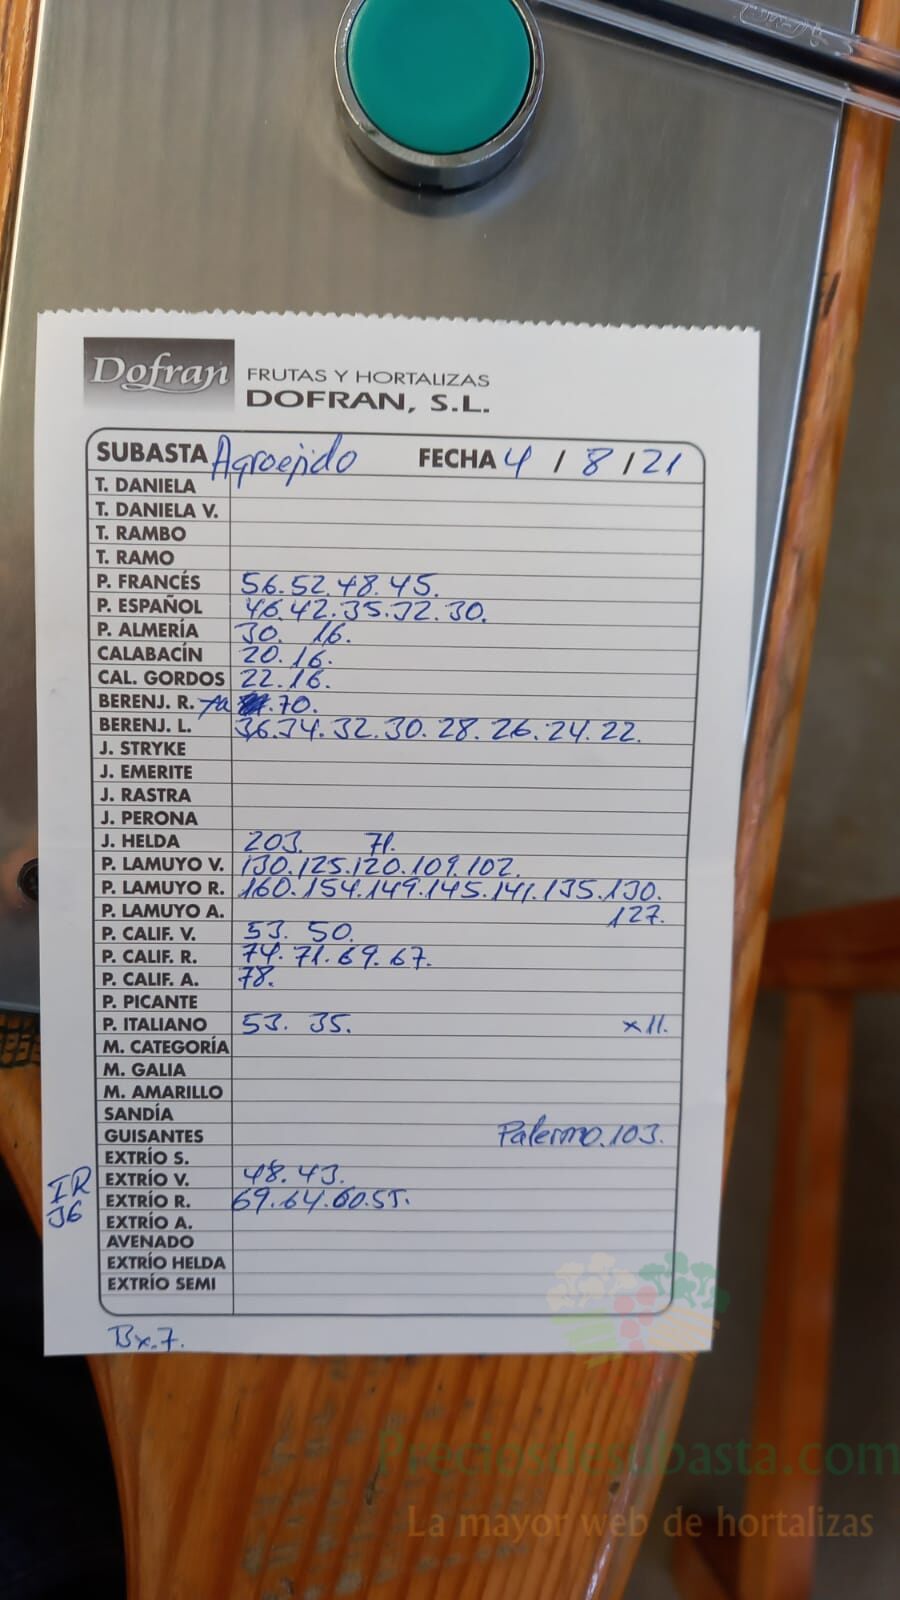 Dofran FRUTAS Y HORTALIZAS
DOFRAN, S.L.
SUBASTA Agroejido FECHA 4 / 8 / 21
T. DANIELA
T. DANIELA V.
T. RAMBO
T. RAMO
P. FRANCÉS 56.52.48.45.
P. ESPAÑOL 46.42.35.32.30.
P. ALMERÍA 30. 16.
CALABACÍN 20.16.
CAL. GORDOS 22.16.
BERENJ. R. .70.
BERENJ. L. 36.34.32.30.28.26.24.22.
J. STRYKE
J. EMERITE
J. RASTRA
J. PERONA
J. HELDA 203. 71.
P. LAMUYO V. 130.125.120.109.102.
P. LAMUYO R. 160.154.149.145.141.135.130.
P. LAMUYO A. 127.
P. CALIF. V. 53. 50.
P. CALIF. R. 74.71.69.67.
P. CALIF. A. 78.
P. PICANTE
P. ITALIANO 53. 35. x11.
M. CATEGORÍA
M. GALIA
M. AMARILLO
SANDÍA
GUISANTES Palermo.103.
EXTRÍO S.
EXTRÍO V. 48.43.
IR EXTRÍO R. 69.64.60.55.
36 EXTRÍO A.
AVENADO
EXTRÍO HELDA
EXTRÍO SEMI
Bx.7.
Preciosdesubasta.com
La mayor web de hortalizas